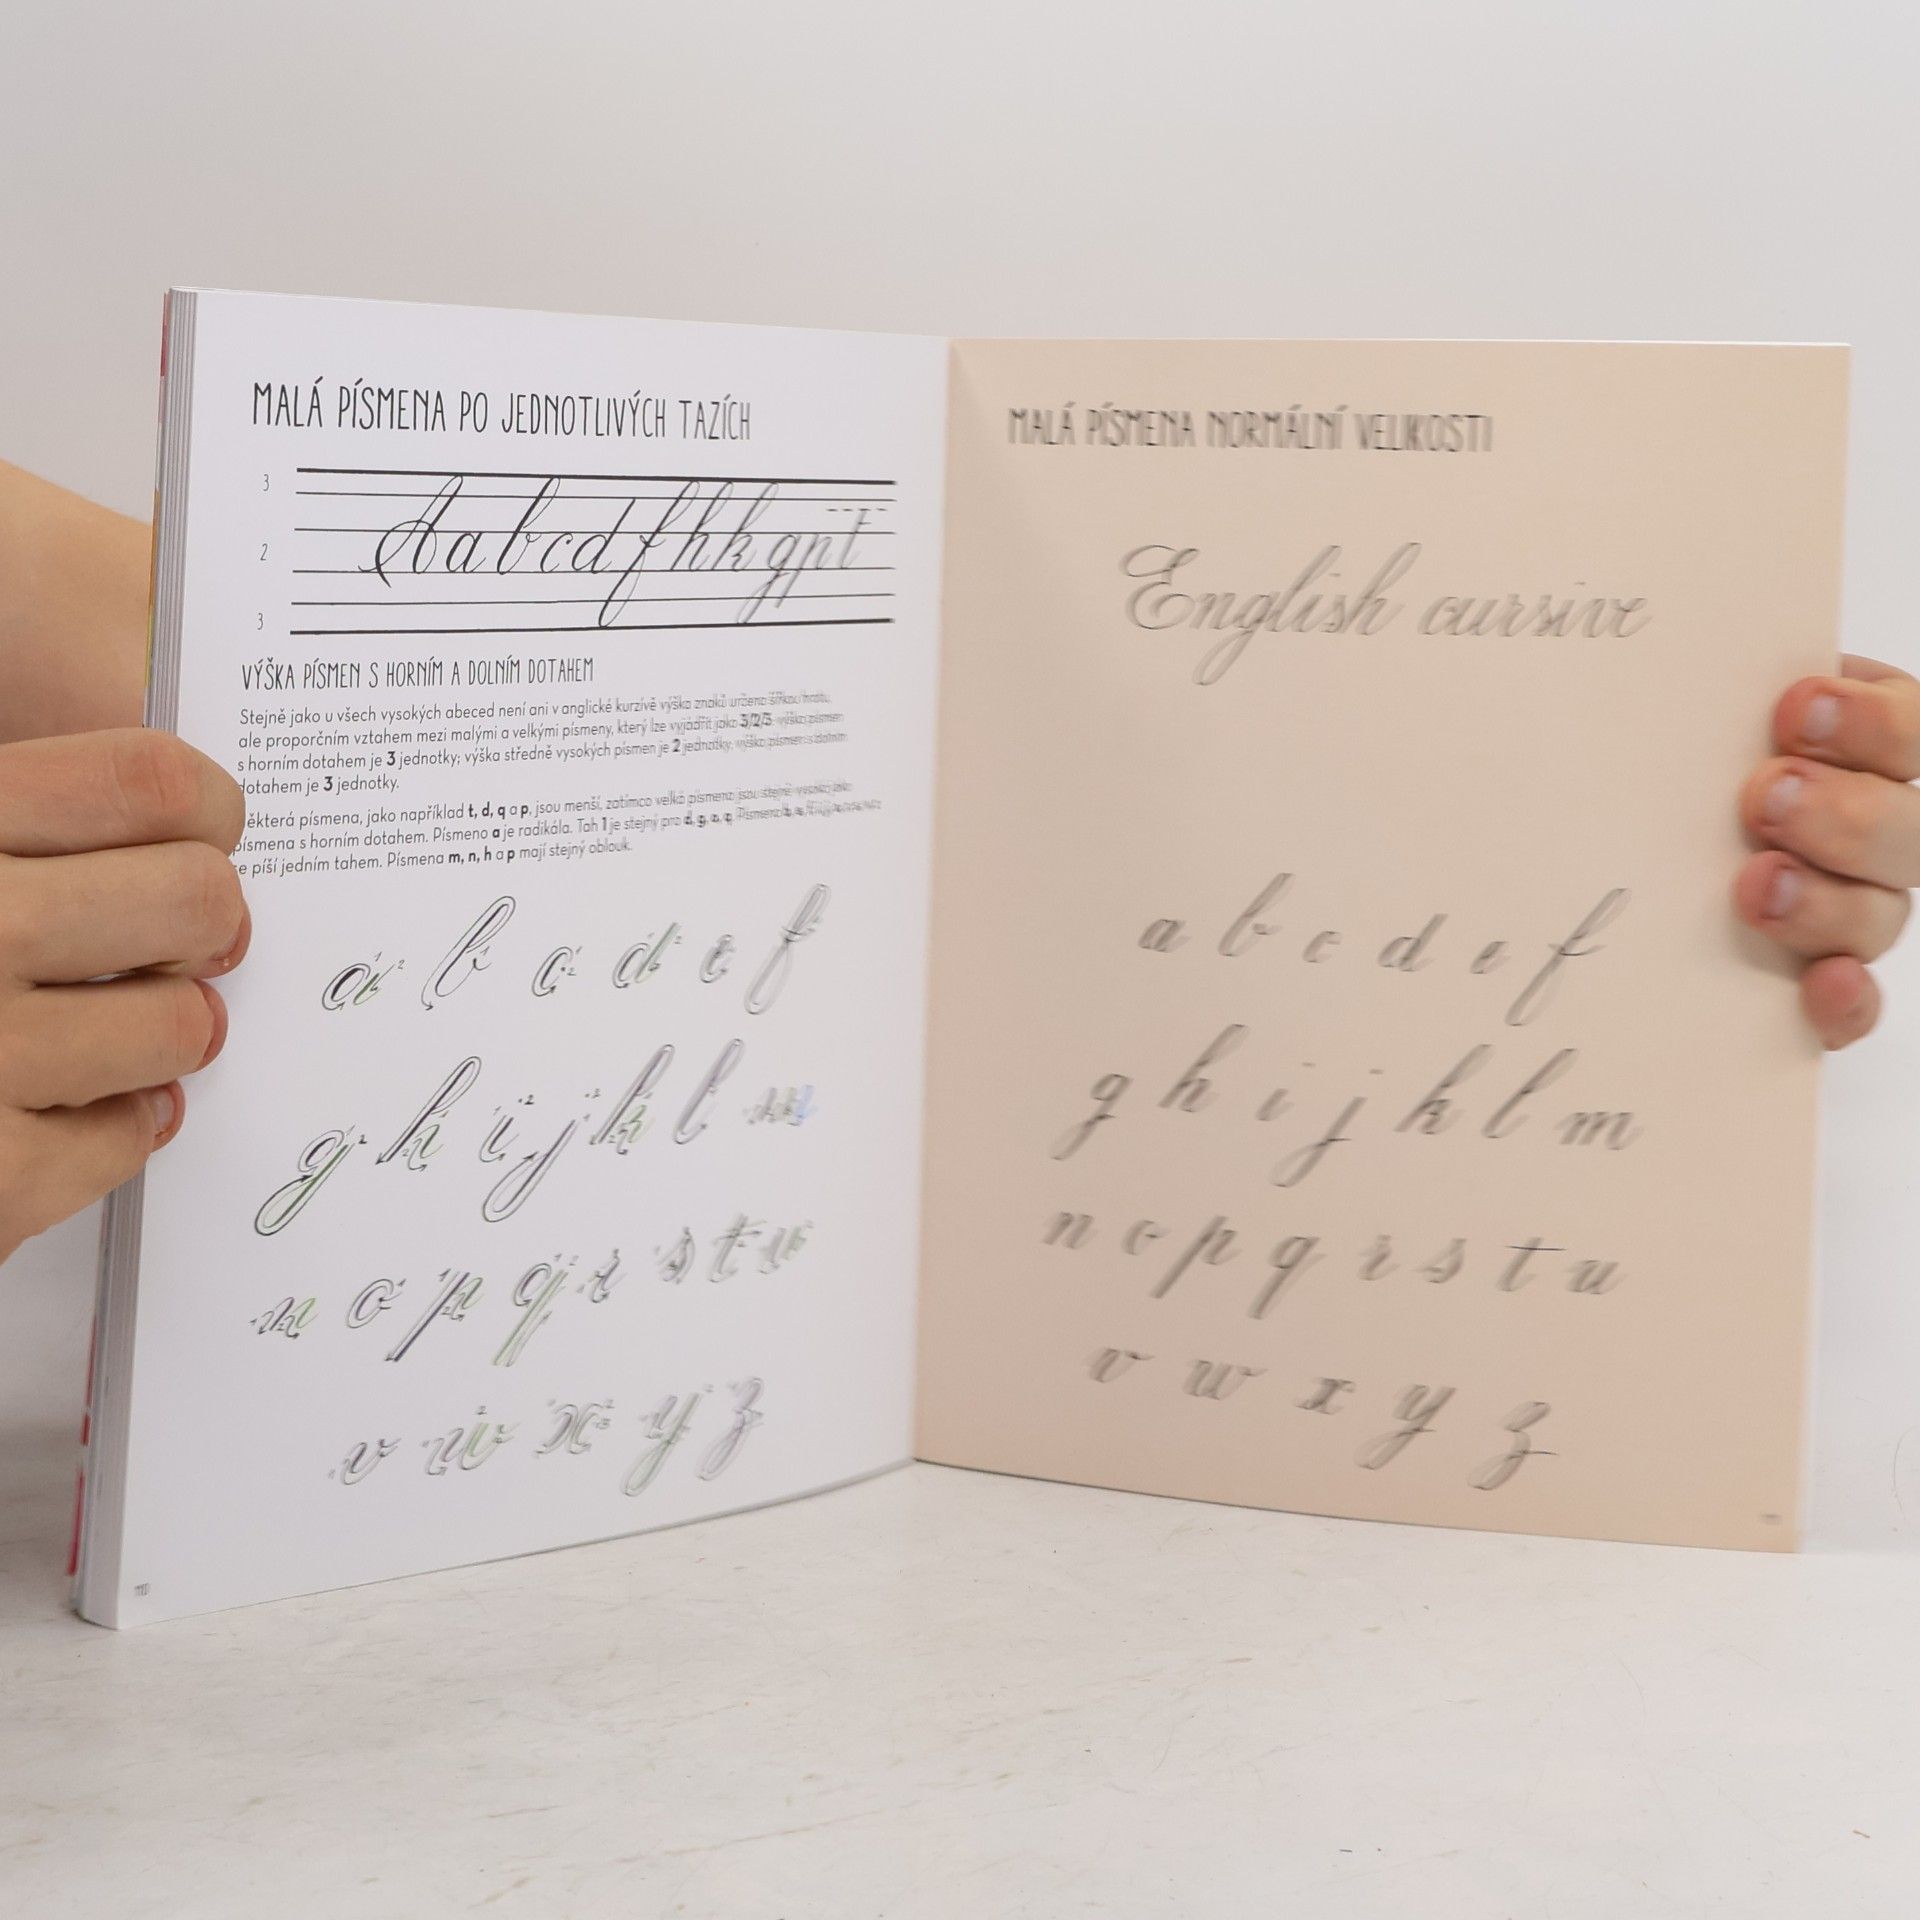 MALÁ PÍSMENA PO JEDNOTLIVÝCH TAZÍCH
3
2
3
Aabcdfhkgpt
VÝŠKA PÍSMEN S HORNÍM A DOLNÍM DOTAHEM
Stejně jako u všech vysokých abeced není ani v anglické kurzívě výška znaků určena šířkou hrotu,
ale proporčním vztahem mezi malými a velkými písmeny, který lze vyjádřit jako 3/2/3: výška písmen
s horním dotahem je 3 jednotky; výška středně vysokých písmen je 2 jednotky, výška písmen s dolním
dotahem je 3 jednotky.
ěkterá písmena, jako například t, d, q a p, jsou menší, zatímco velká písmena jsou stejně vysoká jako
písmena s horním dotahem. Písmeno a je radikála. Tah 1 je stejný pro d, g, a, q. Písmena
e píší jedním tahem. Písmena m, n, h a p mají stejný oblouk.
a b c d e f
g h i j k l m
n o p q r s t u
v w x y z
MALÁ PÍSMENA NORMÁLNÍ VELIKOSTI
English cursive
a b c d e f
g h i j k l m
n o p q r s t u
v w x y z